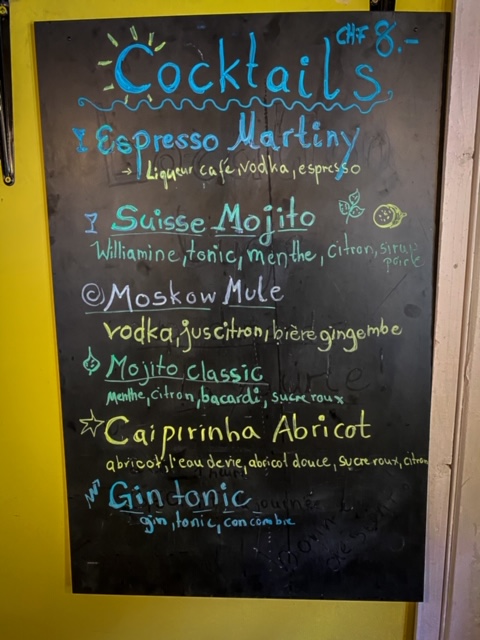 CHF 8.-
Cocktails
Espresso Martiny
→ Liqueur café, vodka, espresso
Suisse Mojito
Williamine, tonic, menthe, citron, sirup
poire
Moskow Mule
vodka, jus citron, bière gingembe
Mojito classic
menthe, citron, bacardi, sucre roux
Caipirinha Abricot
abricot, l'eau de vie, abricot douce, sucre roux, citron
Gin tonic
gin, tonic, concombre